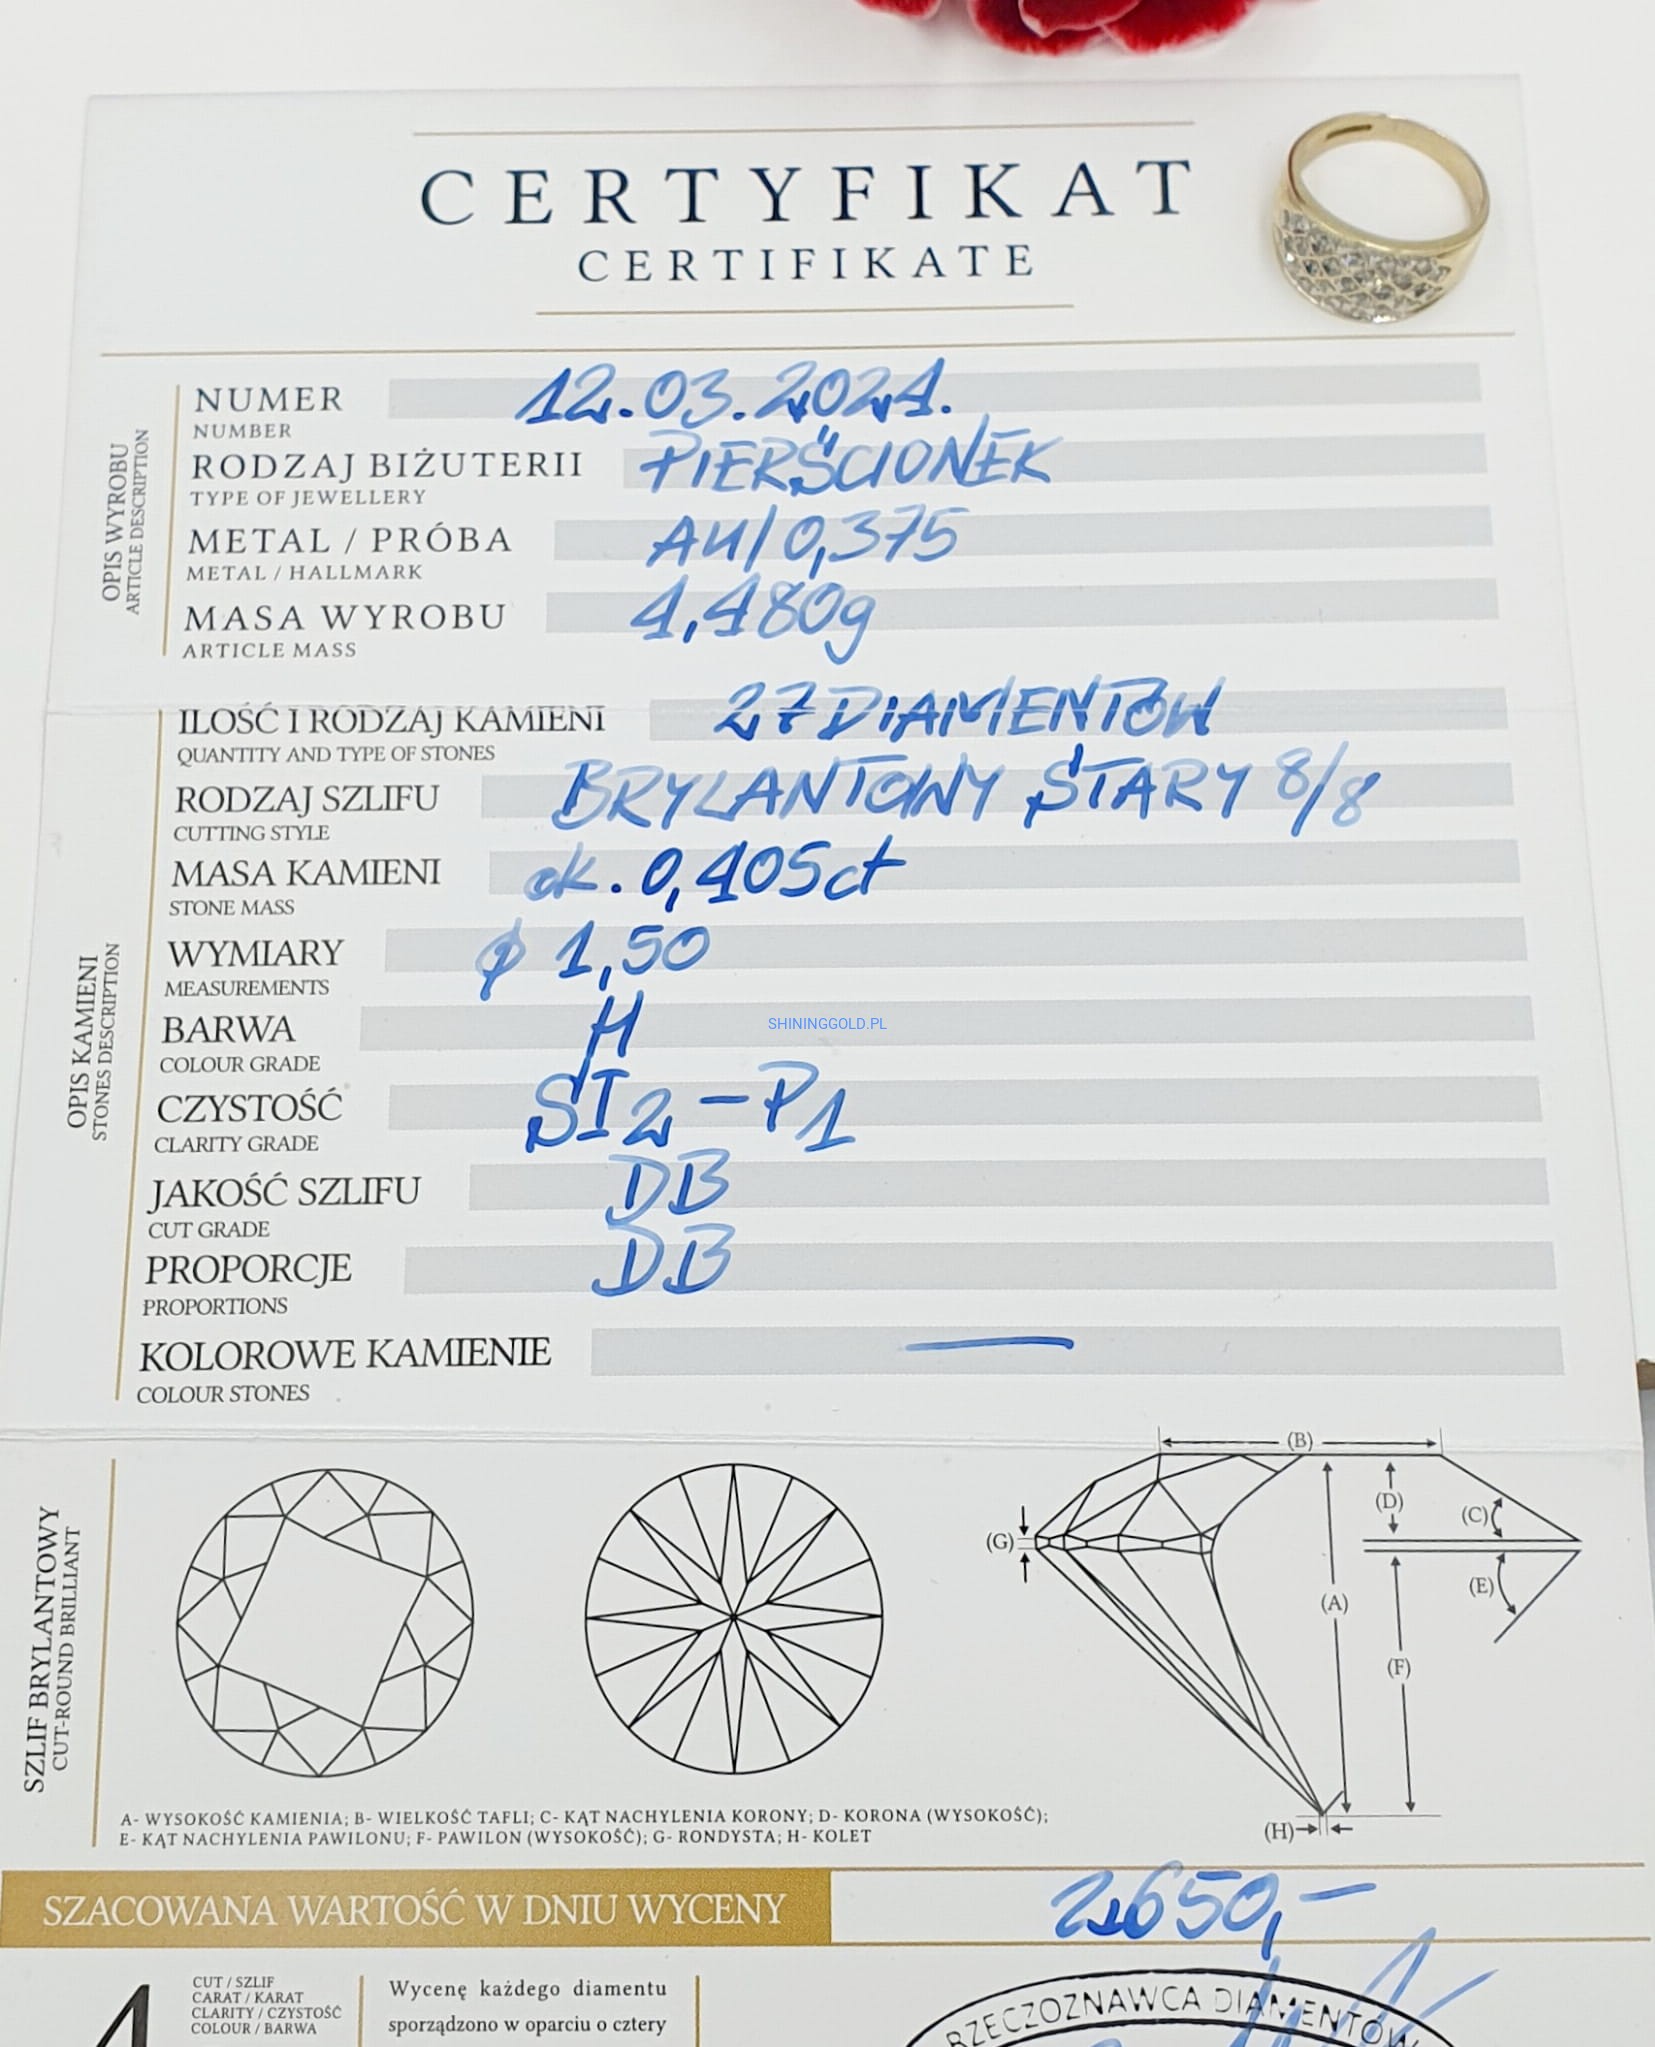 CERTYFIKAT
CERTIFIKATE
OPIS WYROBU
ARTICLE DESCRIPTION
NUMER 12.03.2024.
NUMBER
RODZAJ BIŻUTERII PIERŚCIONEK
TYPE OF JEWELLERY
METAL / PRÓBA AU/0,375
METAL / HALLMARK
MASA WYROBU 4,480g
ARTICLE MASS
OPIS KAMIENI
STONES DESCRIPTION
ILOŚĆ I RODZAJ KAMIENI 27 DIAMENTÓW
QUANTITY AND TYPE OF STONES
RODZAJ SZLIFU BRYLANTOWY STARY 8/8
CUTTING STYLE
MASA KAMIENI ok. 0,405ct
STONE MASS
WYMIARY ϕ 1,50
MEASUREMENTS
BARWA H
COLOUR GRADE
SHININGGOLD.PL
CZYSTOŚĆ SI2-P1
CLARITY GRADE
JAKOŚĆ SZLIFU DB
CUT GRADE
PROPORCJE DB
PROPORTIONS
KOLOROWE KAMIENIE —
COLOUR STONES
SZLIF BRYLANTOWY
CUT-ROUND BRILLIANT
(B)
(D)
(C)
(G)
(E)
(A)
(F)
(H)
A- WYSOKOŚĆ KAMIENIA; B- WIELKOŚĆ TAFLI; C- KĄT NACHYLENIA KORONY; D- KORONA (WYSOKOŚĆ);
E- KĄT NACHYLENIA PAWILONU; F- PAWILON (WYSOKOŚĆ); G- RONDYSTA; H- KOLET
SZACOWANA WARTOŚĆ W DNIU WYCENY 2650,-
4
CUT / SZLIF
CARAT / KARAT
CLARITY / CZYSTOŚĆ
COLOUR / BARWA
Wycenę każdego diamentu
sporządzono w oparciu o cztery
RZECZOZNAWCA DIAMENTÓW